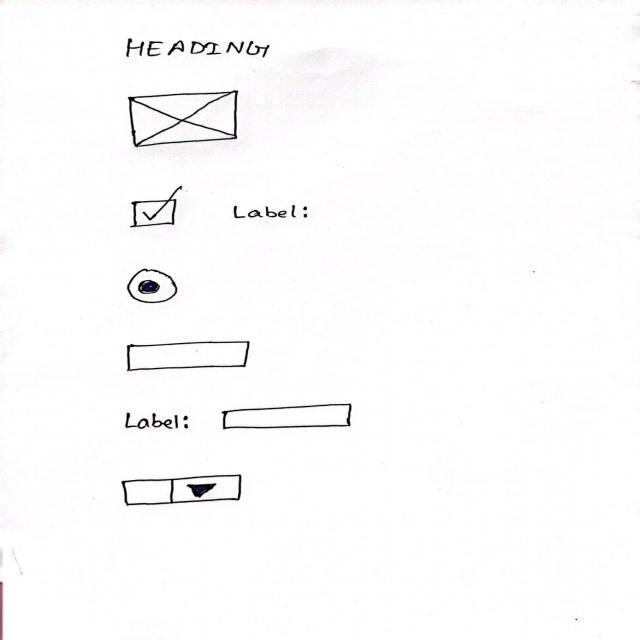 HEADING
Label:
Label: